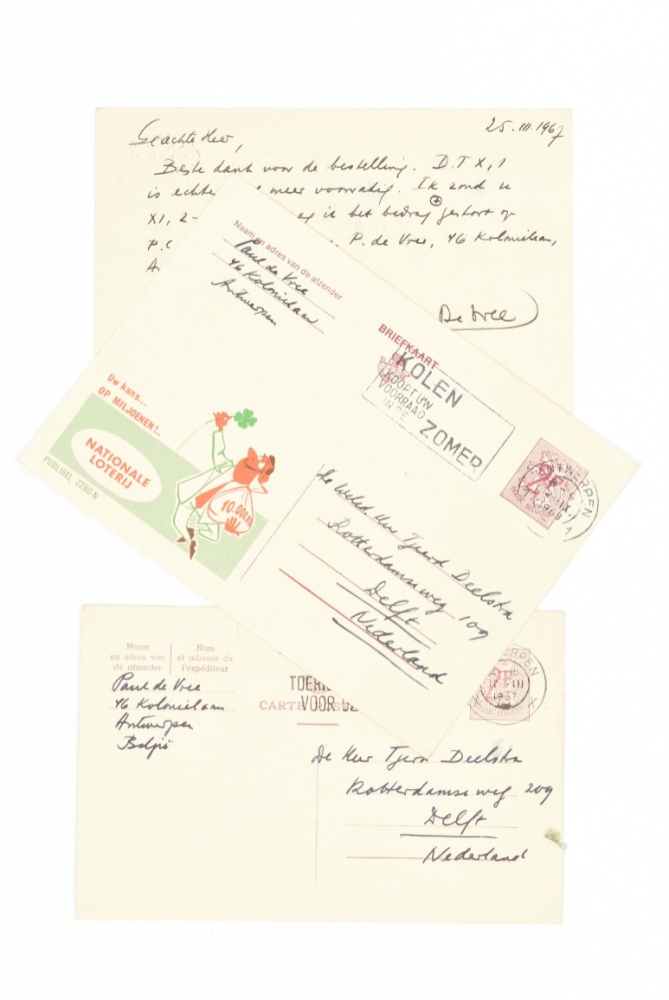 25.III.1967
Geachte Heer,
Beste dank voor de bestelling. DTX,1
is echter meer voorradig. Ik zend u
XI, 2- het bedrag gestort op
P.C P. de Vree, 46 Kolonielaan,
De Vree
Naam en adres van de afzender
Paul de Vree
46 Kolonielaan
Antwerpen
BRIEFKAART
KOLEN
KOOPT UW
VOORRAAD
IN DE ZOMER
2F
ANTWERPEN
1968
1
Uw kans...
OP MILJOENEN!..
NATIONALE
LOTERIJ
PUBLIBEL 2280 N
10.000.000
De Weled Heer Tjeerd Deelstra
Rotterdamseweg 109
Delft
Nederland
Naam
en adres van
de afzender
Nom
et adresse de
l'expéditeur
Paul de Vree
46 Kolonielaan
Antwerpen
België
TOERI
VOOR DE
CARTE
ERPEN
III
1967
X X
De Heer Tjerd Deelstra
Rotterdamse weg 209
Delft
Nederland